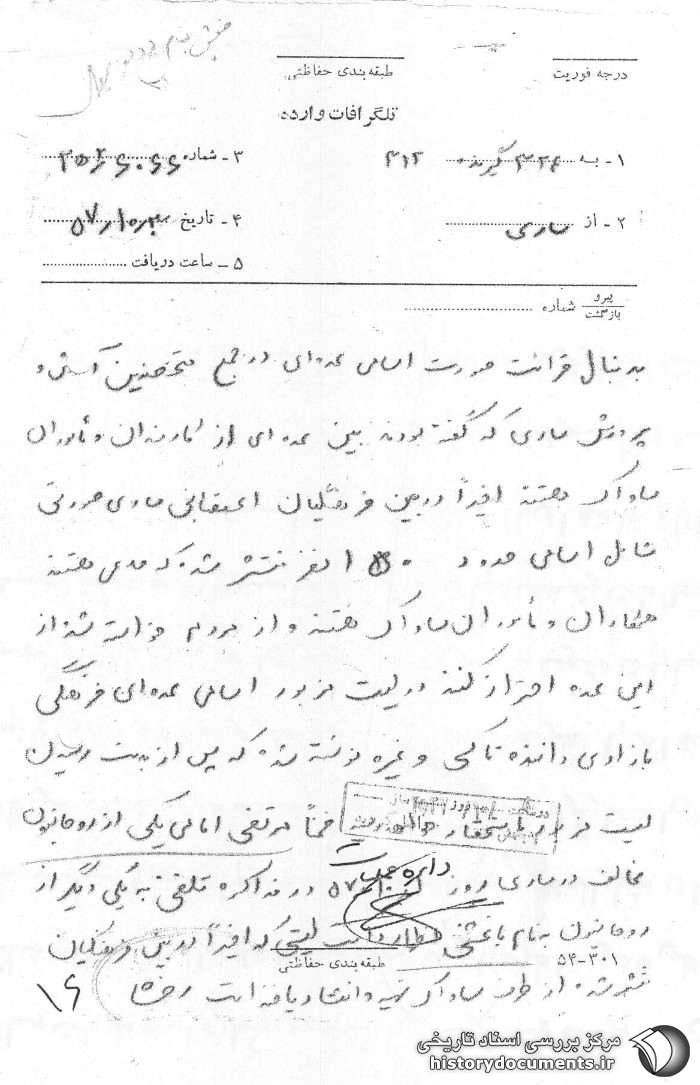 درجه فوریت
طبقه‌بندی حفاظتی
تلگرافات وارده
۱- به ۳۲۴ گیرنده ۳۱۲
۲- از ساری
۳- شماره
۴- تاریخ
۵- ساعت دریافت
پیرو
بازگشت شماره
بدنبال قرائت صورت اسامی عده‌ای در جمع متحصنین آموزش و
پرورش ساری که گفته بودند بین عده ای از کارمندان و مأموران
ساواک هستند اخیراً در بین فرهنگیان اعتصابی ساری صورتی
شامل اسامی حدود ۱۵۰ نفر منتشر شده که مدعی هستند
همکاران و مأموران ساواک هستند و از مردم خواسته شده از
این عده احتراز کنند در لیست مزبور اسامی عده‌ای فرهنگی
بازاری راننده تاکسی و غیره نوشته شده که پس از بدست رسیدن
لیست مزبور باستحضار خواهد رسید ضمناً مرتضی امامی یکی از روحانیون
مخالف در ساری روز ۵۷ در مذاکره تلفنی به یکی دیگر از
روحانیون به نام باغشنی اظهار داشت لیستی که اخیراً در بین فرهنگیان
۳۰۱-۵۴ طبقه‌بندی حفاظتی
منتشر شده از طرف ساواک تهیه و انتشار یافته است
۱۶
مرکز بررسی اسناد تاریخی
historydocuments.ir